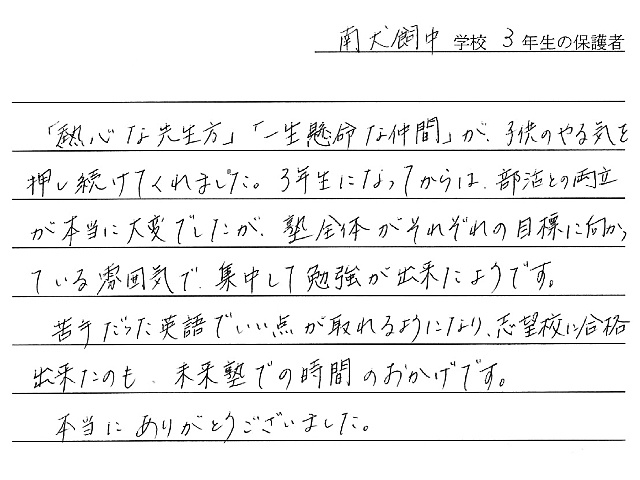 南犬飼中 学校 3 年生の保護者
「熱心な先生方」「一生懸命な仲間」が、子供のやる気を
押し続けてくれました。3年生になってからは、部活との両立
が本当に大変でしたが、塾全体がそれぞれの目標に向かっ
ている雰囲気で、集中して勉強が出来たようです。
苦手だった英語でいい点が取れるようになり、志望校に合格
出来たのも、未来塾での時間のおかげです。
本当にありがとうございました。